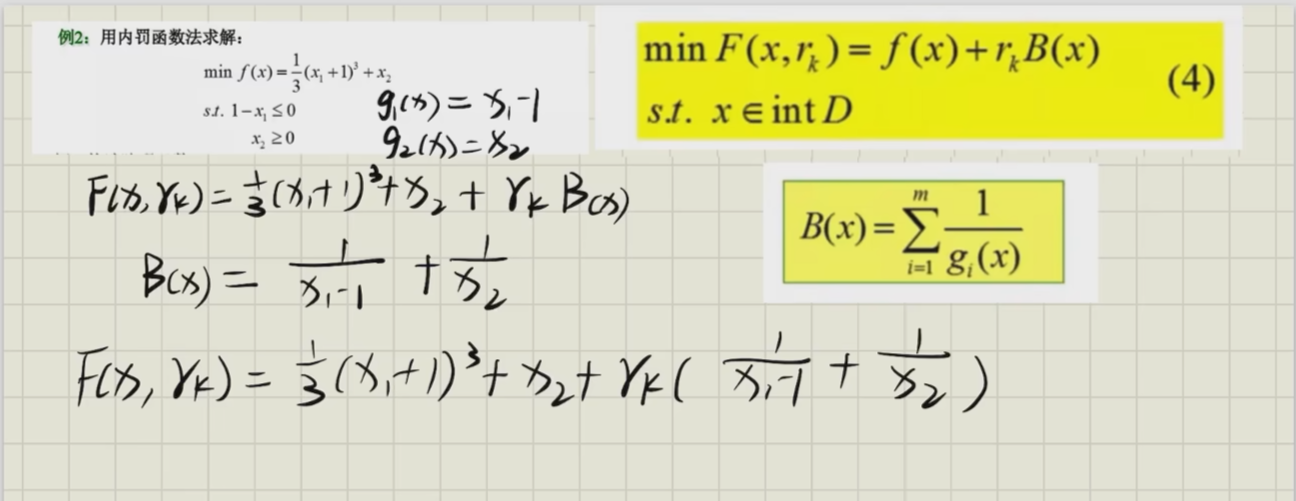 例2：用内罚函数法求解：
min f(x)=1/3(x₁+1)³+x₂
s.t. 1-x₁≤0
x₂≥0
g₁(x)=x₁-1
g₂(x)=x₂
min F(x,rₖ)=f(x)+rₖB(x)
s.t. x∈int D
(4)
F(x,rₖ)=1/3(x₁+1)³+x₂+rₖB(x)
B(x)=∑ᵢ₌₁ᵐ 1/gᵢ(x)
B(x)=1/(x₁-1)+1/x₂
F(x,rₖ)=1/3(x₁+1)³+x₂+rₖ(1/(x₁-1)+1/x₂)